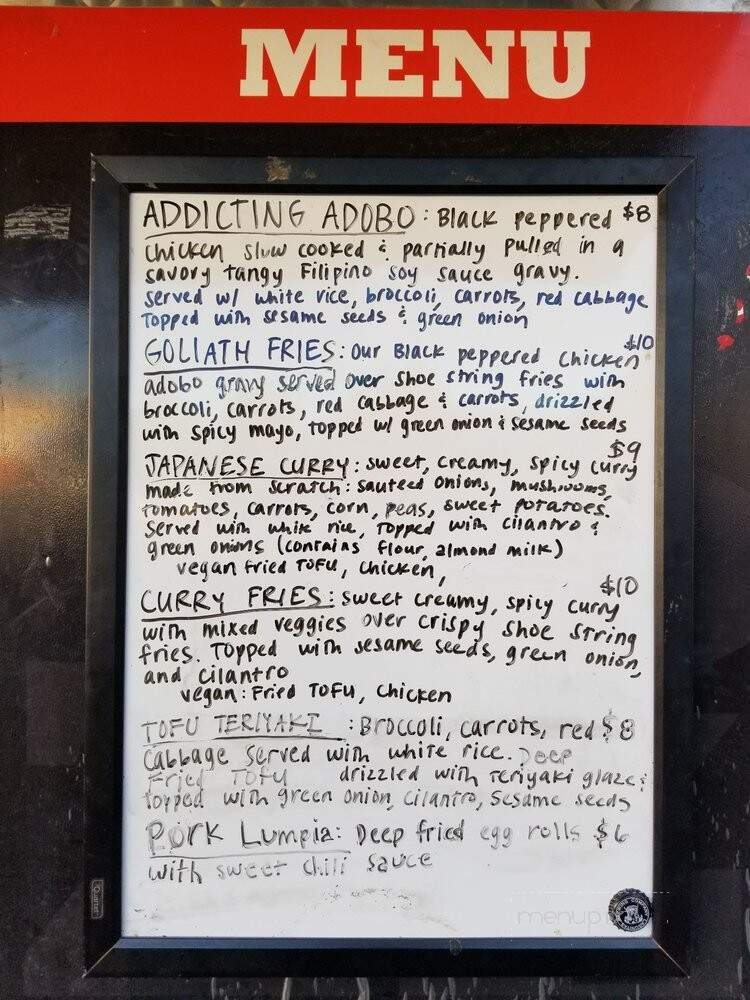 MENU
ADDICTING ADOBO: Black peppered $8
chicken slow cooked & partially pulled in a
savory tangy Filipino soy sauce gravy.
served w/ white rice, broccoli, carrots, red cabbage
Topped with sesame seeds & green onion
GOLIATH FRIES: Our Black peppered chicken $10
adobo gravy served over shoe string fries with
broccoli, carrots, red cabbage & carrots, drizzled
with spicy mayo, topped w/ green onion & sesame seeds
JAPANESE CURRY: sweet, creamy, spicy curry $9
made from scratch: sauteed onions, mushrooms,
tomatoes, carrots, corn, peas, sweet potatoes.
Served with white rice, topped with cilantro &
green onions (contains flour, almond milk)
vegan fried TOFU, Chicken,
CURRY FRIES: sweet creamy, spicy curry $10
with mixed veggies over crispy shoe string
fries. Topped with sesame seeds, green onion,
and cilantro
vegan: Fried TOFU, Chicken
TOFU TERIYAKI : Broccoli, carrots, red $8
cabbage served with white rice. Deep
Fried TOFU drizzled with Teriyaki glaze &
topped with green onion, cilantro, sesame seeds
Pork Lumpia: Deep fried egg rolls $6
with sweet chili sauce
Quartet
menup